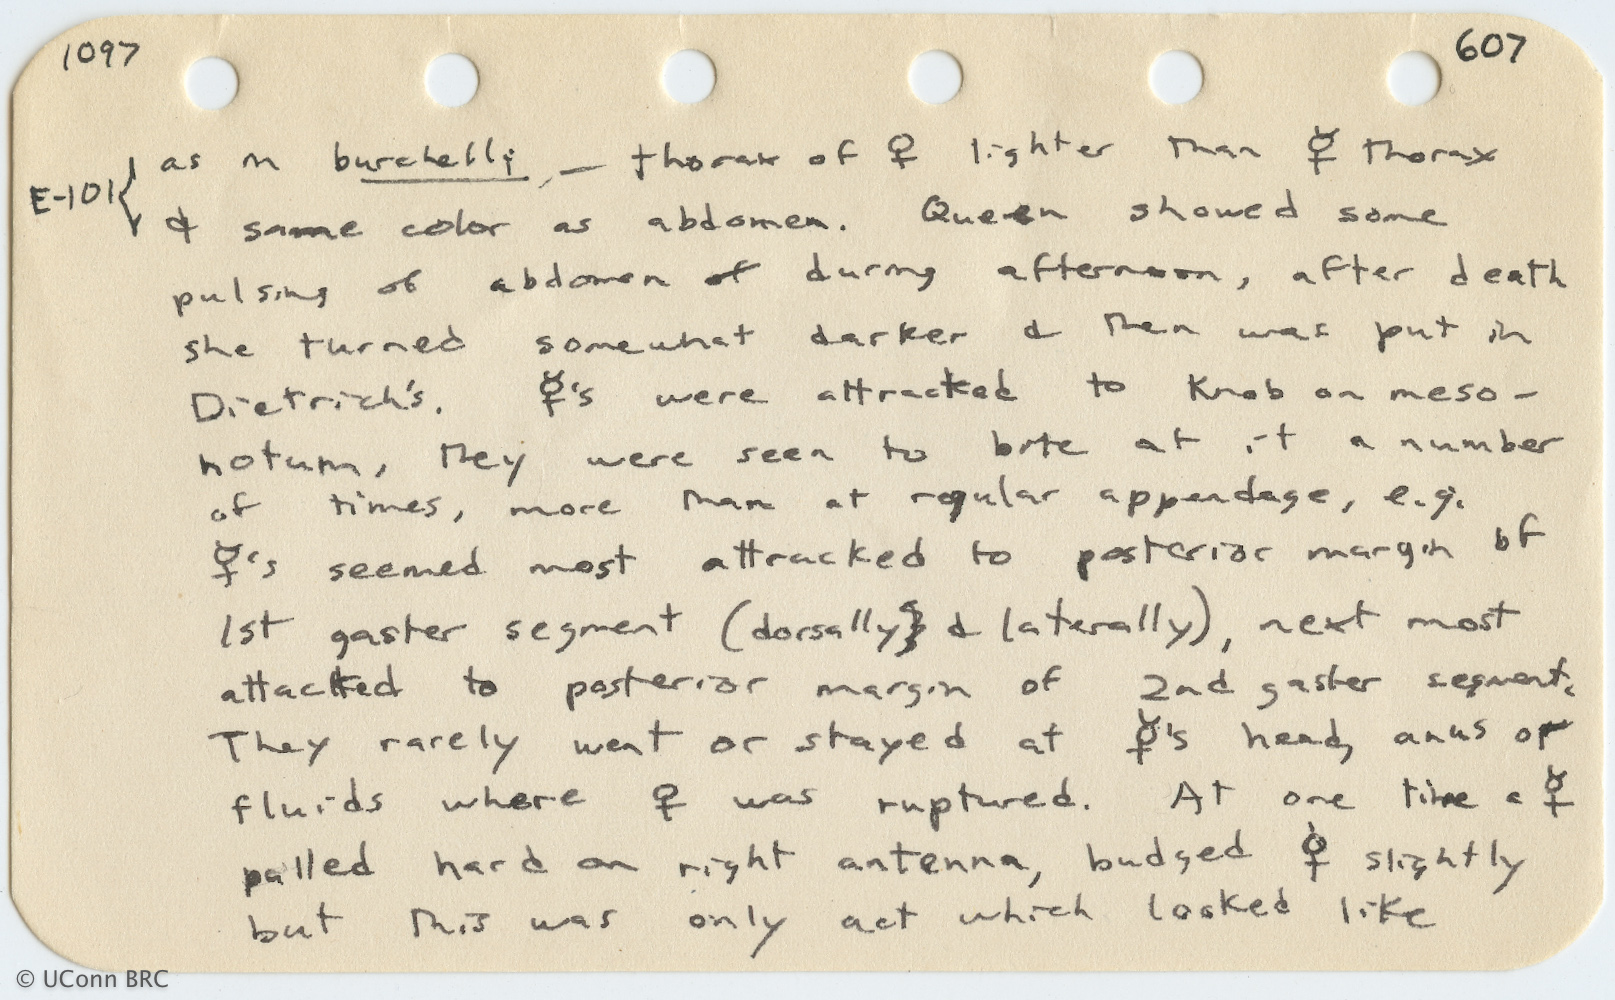 1097
607
E-101{ as in burchelli, — thorax of ♀ lighter than ☿ thorax
& same color as abdomen. Queen showed some
pulsing of abdomen of during afternoon, after death
she turned somewhat darker & then was put in
Dietrich's. ☿'s were attracked to knob on meso-
notum, they were seen to bite at it a number
of times, more than at regular appendage, e.g.
☿'s seemed most attracked to posterior margin of
1st gaster segment (dorsally & laterally), next most
attackted to posterior margin of 2nd gaster segment.
They rarely went or stayed at ☿'s head, anus or
fluids where ♀ was ruptured. At one time a ☿
pulled hard on right antenna, budged ☿ slightly
but this was only act which looked like
© UConn BRC